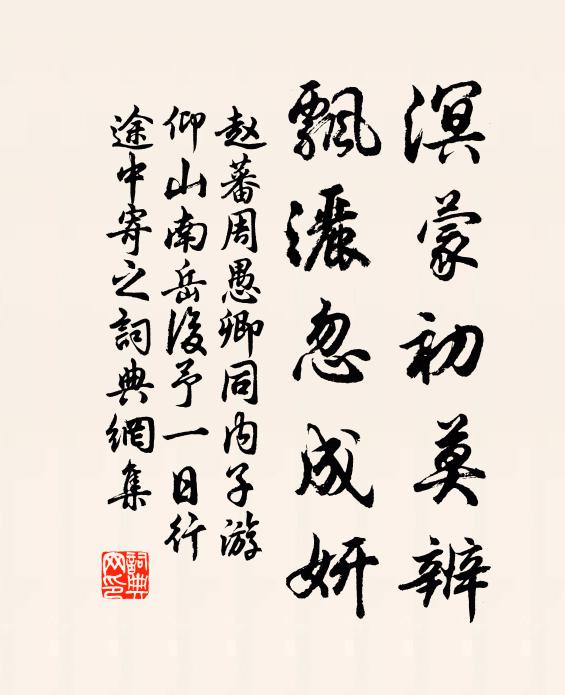 溟蒙初莫辨
飄灑忽成妍
赵蕃周愚卿同内子游
仰山南岳後予一日行
途中寄之詞典網集
詞典网印